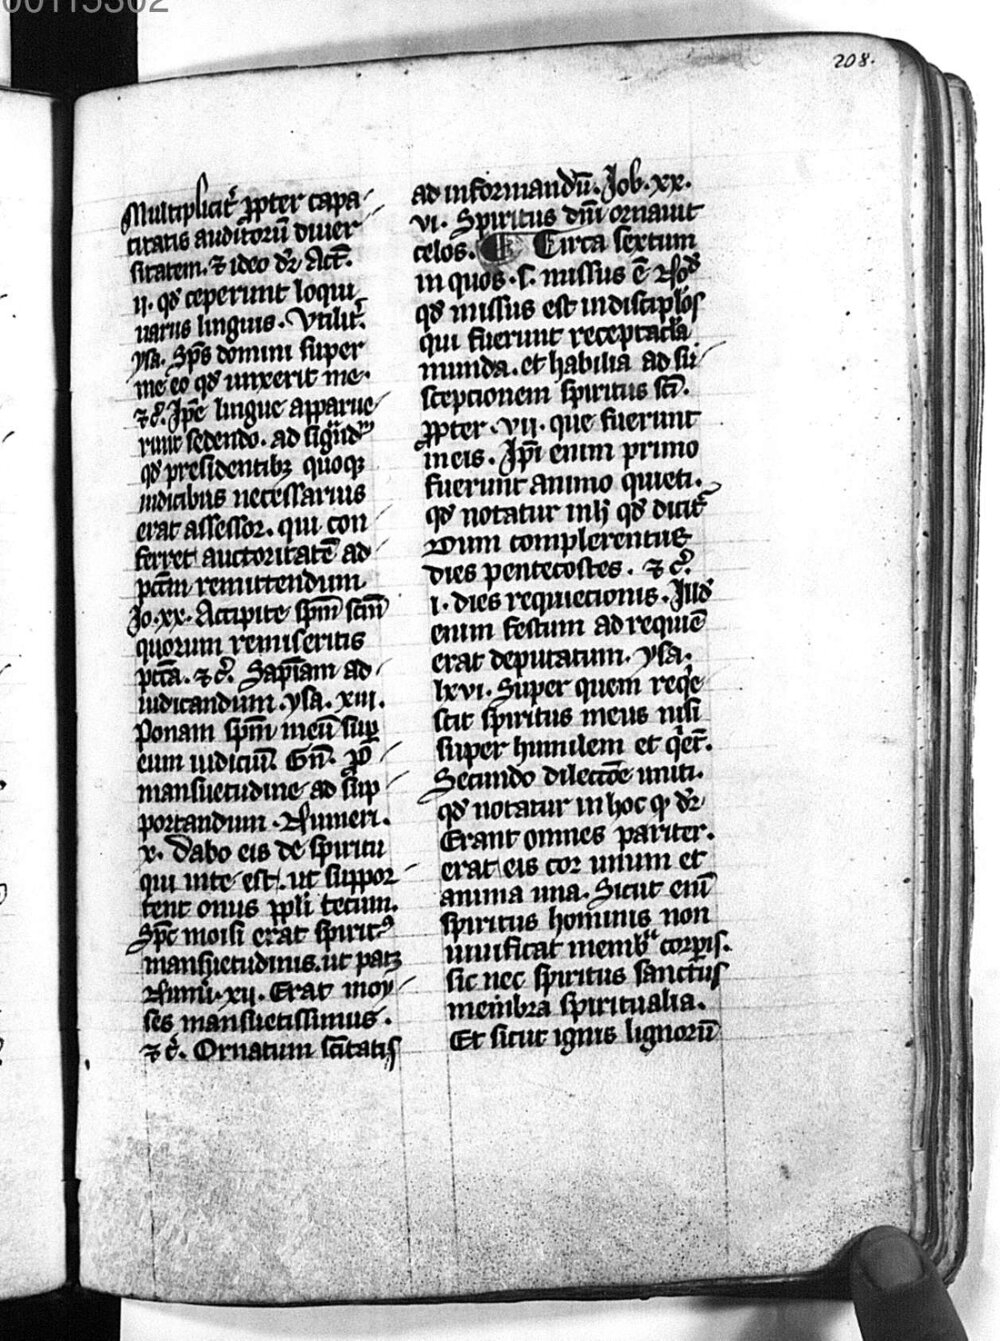 00115302
208.
Multiplicit᷑ ꝓpter capa
citatis auditoꝝ diuer
sitatem. ⁊ ideo dr̄ Act᷑.
ij. qd̓ ceperunt loqui
uariis linguis. Vtilit᷑.
ysa. Sp̄s domini super
me eo qd̓ unxerit me.
⁊ c̓. Ip̄e lingue apparue
runt sedendo. ad
qd̓ presidentibꝫ quoqꝫ
iudicibus necessarius
erat assessor. qui con
ferret auctoritatē ad
pc̄tm̄ remittendum
Jo. xx. Accipite sp̄m sc̄m̄
quorum remiseritis
pc̄ta. ⁊ c̓. Sapīam ad
iudicandum. ysa. xiii.
Ponam sp̄m meū sup̄
eum iudiciū.
mansuetudine ad sup
portandum. Numeri.
x. Dabo eis de spiritu
qui in te est. ut suppor
tent onus ppl̄i tecum.
Sp̄c moisi erat spiritꝰ
mansuetudinis. ut patꝫ
Num̄i. xii. Erat moy
ses mansuetissimus.
⁊ c̓. Ornatum sc̄itatis
ad informandū. Job. xx.
vi. Spiritus dn̄i ornauit
celos. Circa sextum
in quos. s. missus ē
qd̓ missus est in discipl̄os
qui fuerunt receptac̄la
munda. et habilia ad su
sceptionem spiritus sc̄i.
ꝓpter. vij. que fuerunt
in eis. Ip̄i enim primo
fuerunt animo quieti.
qd̓ notatur in h̓ qd̓ dicit᷑
Dum complerentur
dies pentecostes. ⁊ c̓.
i. dies requietionis. Illd̓
enim festum ad requiē
erat deputatum. ysa.
lxvi. Super quem reqe
scit spiritus meus nisi
super humilem et qet᷑.
Secundo dilectōe uniti.
qd̓ notatur in hoc ꝙ dr̄
Erant omnes pariter.
erat eis cor unum et
anima una. Sicut eni̅
spiritus hominis non
uiuificat membᵃ corpis.
sic nec spiritus sanctus
membra spiritualia.
Et sicut ignis lignorū